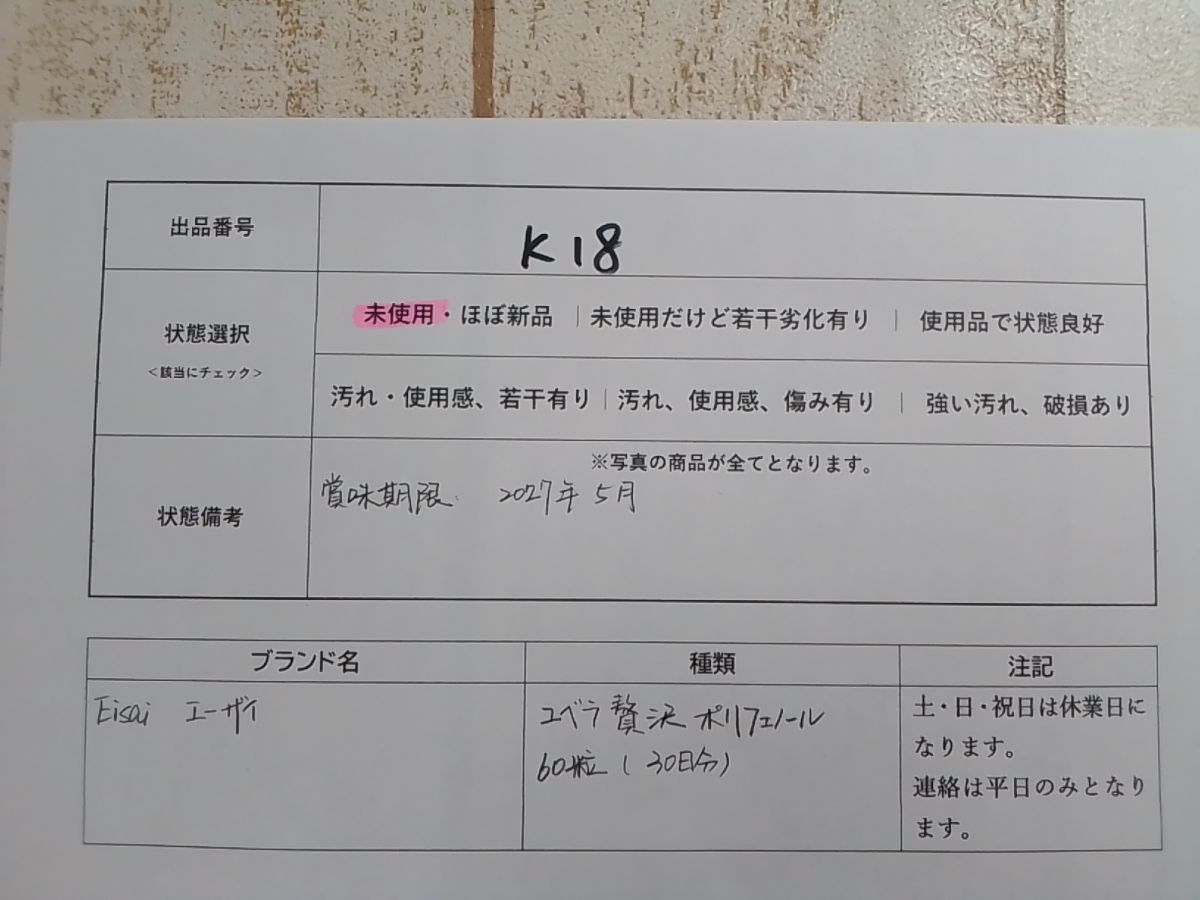 出品番号
K18
状態選択
<該当にチェック>
未使用・ほぼ新品 | 未使用だけど若干劣化有り | 使用品で状態良好
汚れ・使用感、若干有り | 汚れ、使用感、傷み有り | 強い汚れ、破損あり
状態備考
※写真の商品が全てとなります。
賞味期限: 2027年5月
ブランド名
種類
注記
Eisai エーザイ
ユベラ贅沢ポリフェノール
60粒(30日分)
土・日・祝日は休業日に
なります。
連絡は平日のみとなり
ます。